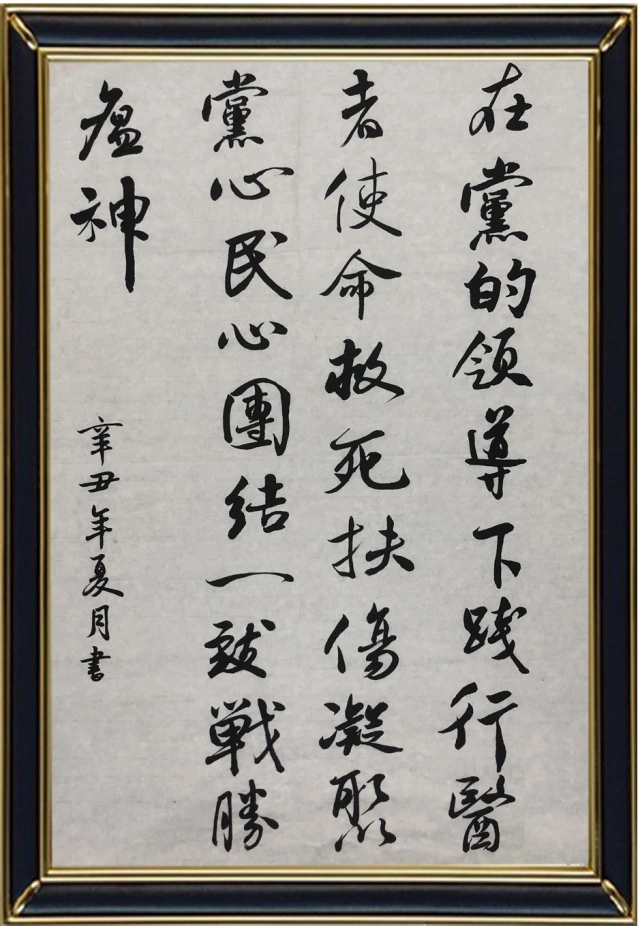 在黨的领導下践行醫
者使命救死扶傷凝聚
黨心民心團结一致戦勝
瘟神
辛丑年夏月書